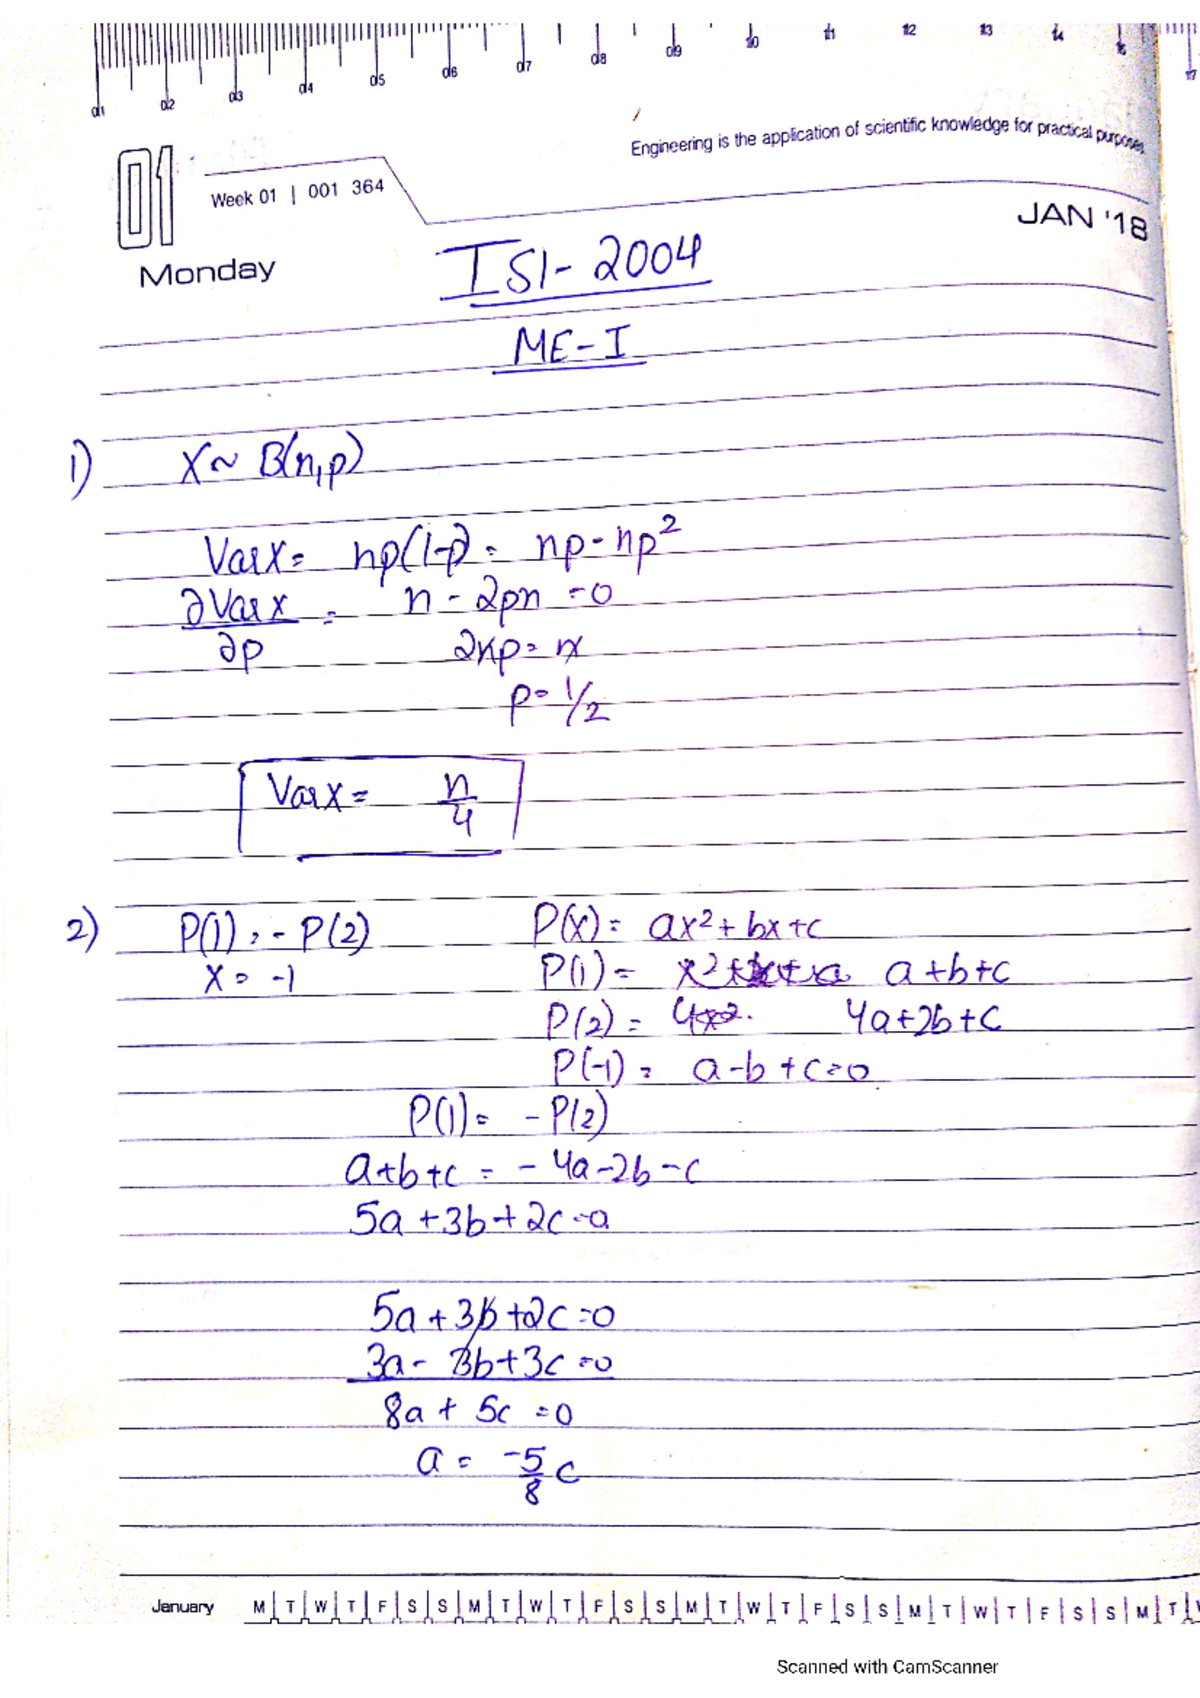 01 02 03 04 05 06 07 08 09 10 11 12 13 14 15 17
Engineering is the application of scientific knowledge for practical purposes.
01
Week 01 | 001 364
JAN '18
Monday
ISI - 2004
ME - I
1) X ~ B(n,p)
Var X = np(1-p) = np - np²
∂Var X / ∂p = n - 2pn = 0
2np = n
p = 1/2
Var X = n/4
2) P(1) = - P(2) P(x) = ax² + bx + c
x = -1 P(1) = a + b + c
P(2) = 4a + 2b + c
P(-1) = a - b + c = 0
P(1) = - P(2)
a + b + c = - 4a - 2b - c
5a + 3b + 2c = 0
5a + 3b + 2c = 0
3a - 3b + 3c = 0
8a + 5c = 0
a = -5/8 c
January M T W T F S S M T W T F S S M T W T F S S M T W T F S S M T W
Scanned with CamScanner